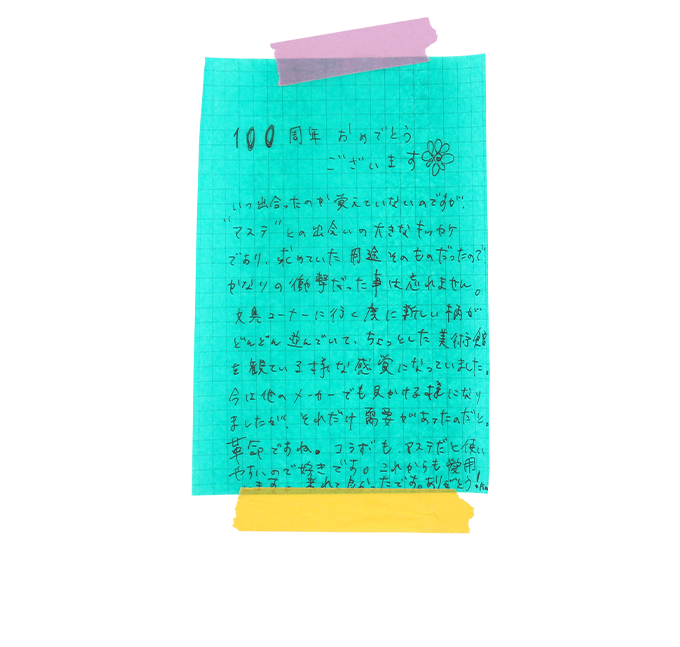 100周年 おめでとう
ございます
いつ出会ったのか覚えていないのですが、
"マステ"との出会いの大きなキッカケ
であり、求めていた用途そのものだったので
かなりの働撃だった事は忘れません。
文具コーナーに行く度に新しい柄が
どんどん遊んでいて、ちょっとした美術館
を観ている様な感覚になっていました。
今は他のメーカーでも見かける様になり
ましたが、それだけ需要があったのだと。
革命ですね。コラボも、マステだと使い
やすいので好きです。これからも愛用
します。来れて良かったです。ありがとう!